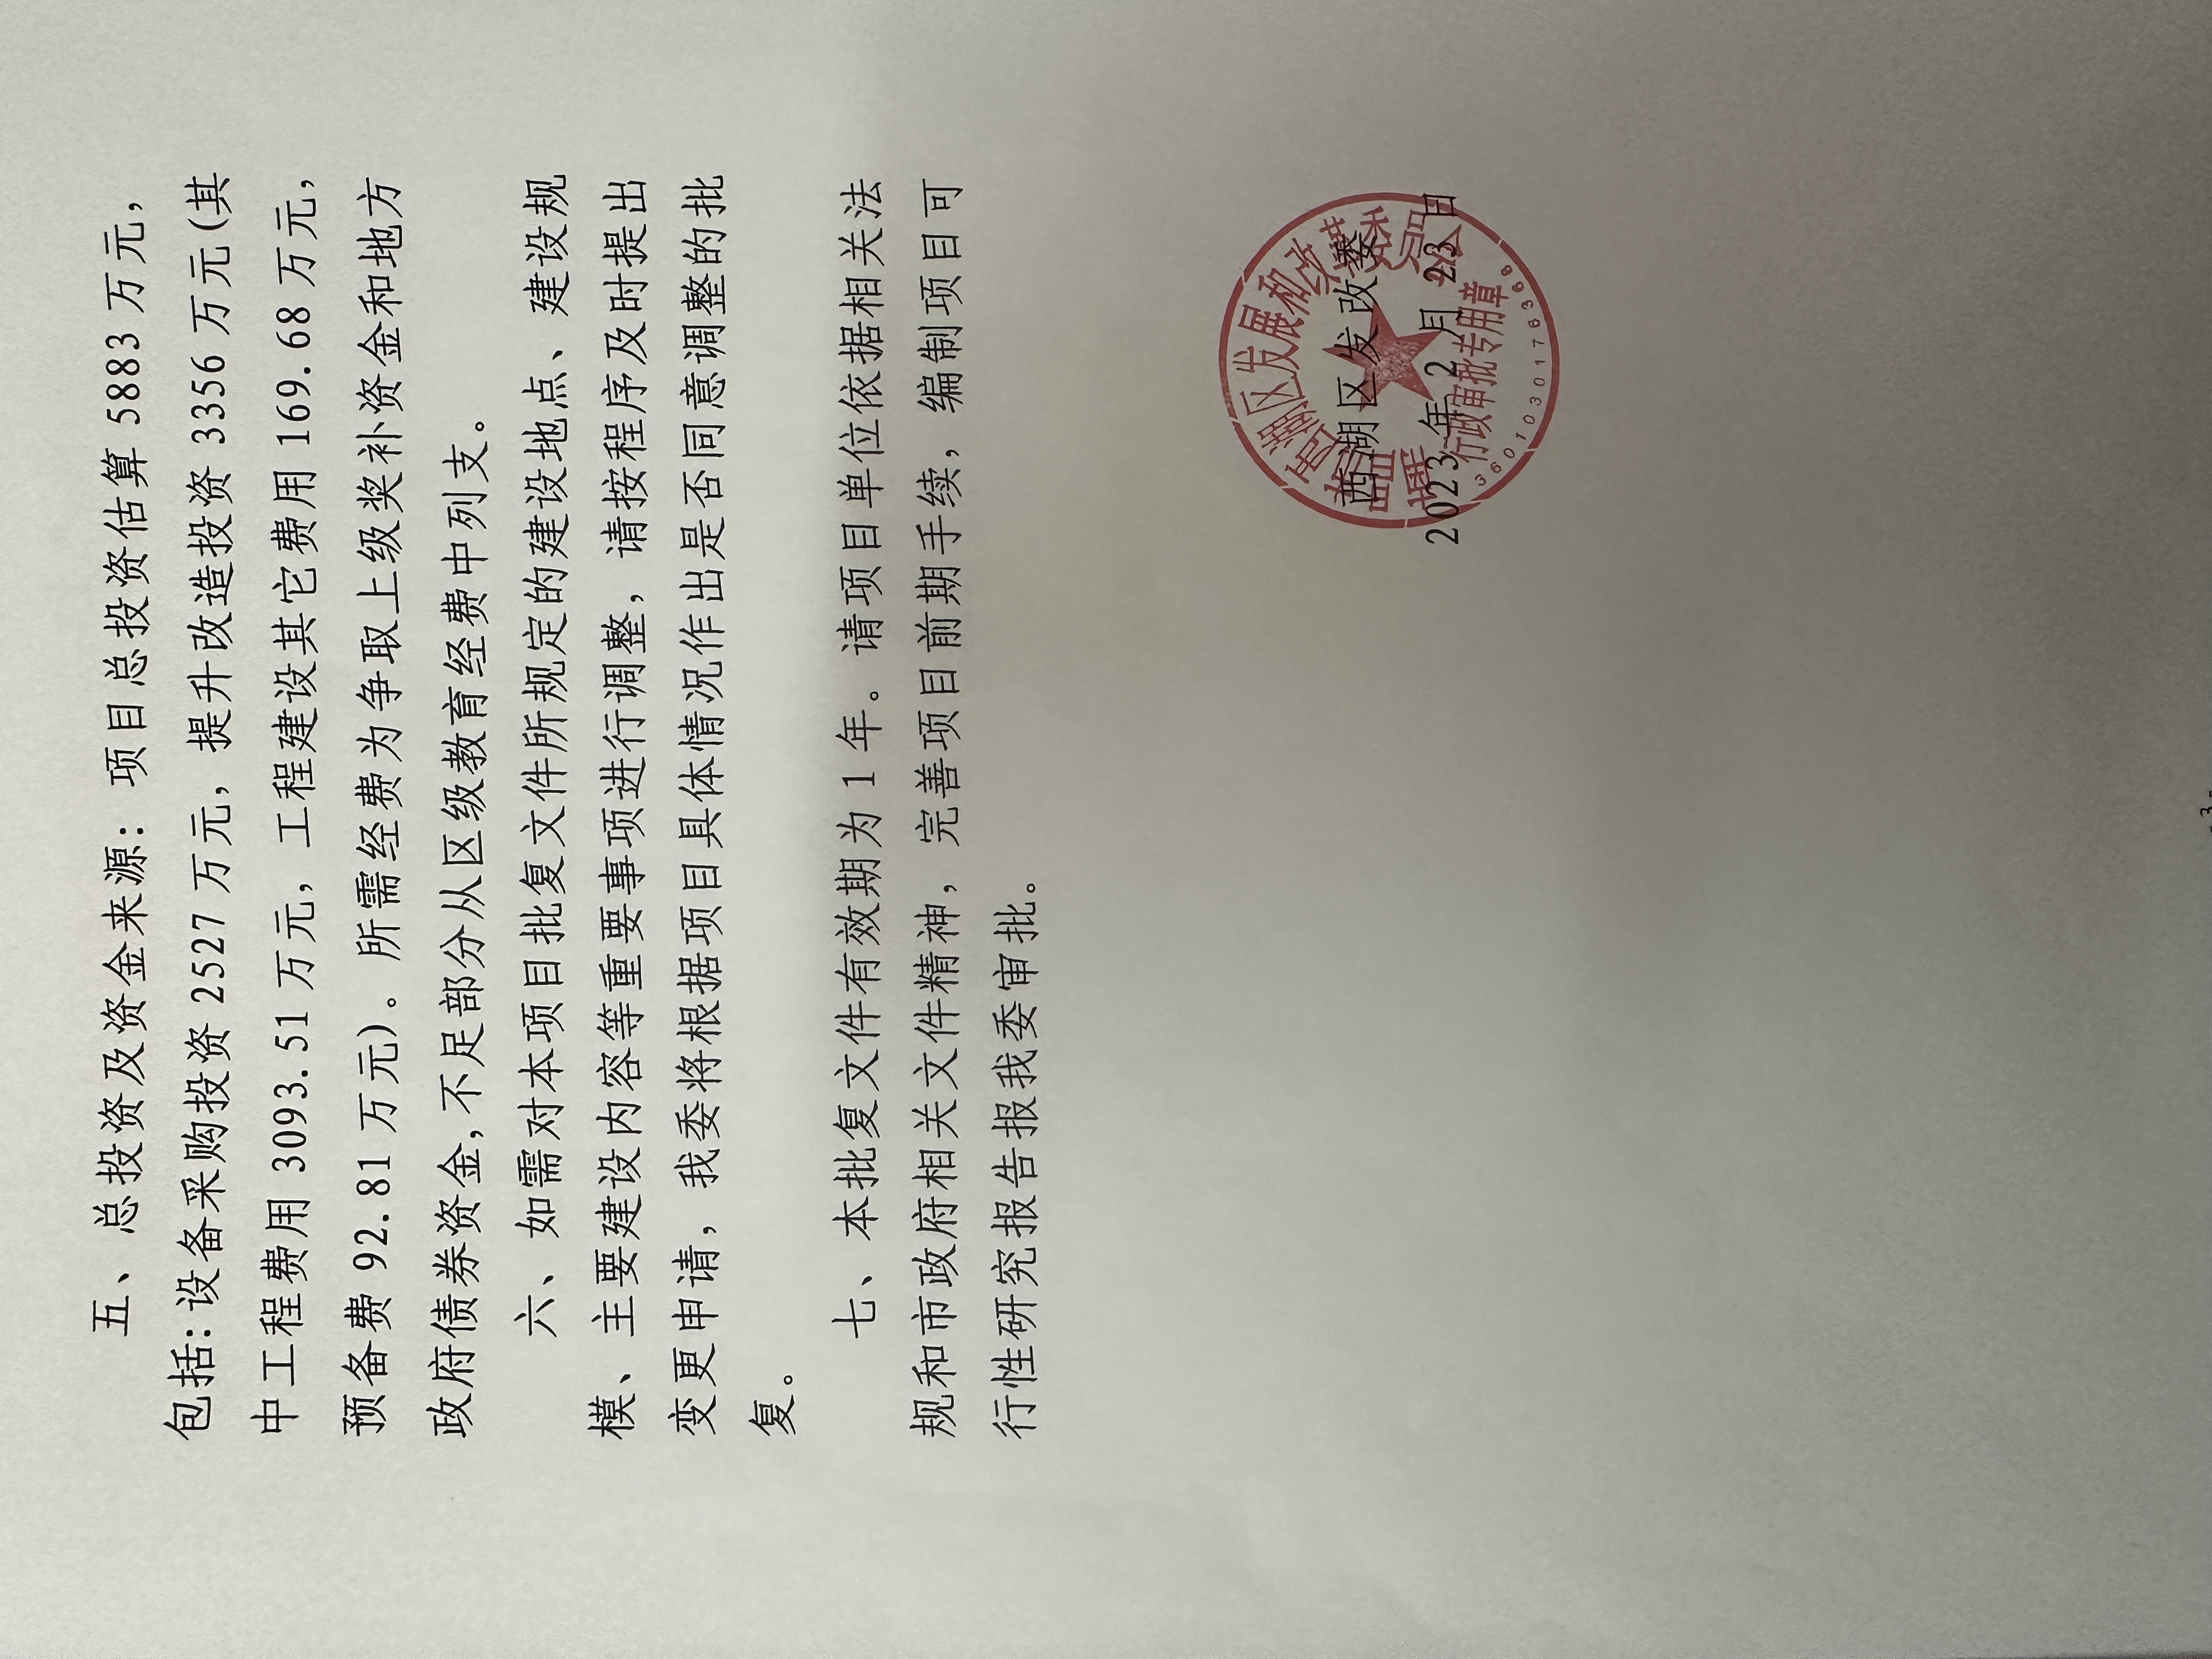 五、总投资及资金来源：项目总投资估算 5883 万元，
包括：设备采购投资 2527 万元，提升改造投资 3356 万元（其
中工程费用 3093.51 万元，工程建设其它费用 169.68 万元，
预备费 92.81 万元）。所需经费为争取上级奖补资金和地方
政府债券资金,不足部分从区级教育经费中列支。
六、如需对本项目批复文件所规定的建设地点、建设规
模、主要建设内容等重要事项进行调整，请按程序及时提出
变更申请，我委将根据项目具体情况作出是否同意调整的批
复。
七、本批复文件有效期为 1 年。请项目单位依据相关法
规和市政府相关文件精神，完善项目前期手续，编制项目可
行性研究报告报我委审批。
西湖区发改委
2023 年 2 月 23 日
南昌市西湖区发展和改革委员会
行政审批专用章
3601030176366
- 3 -